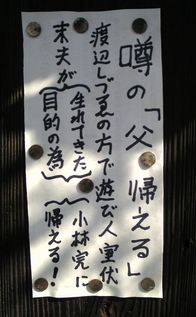 噂の「父帰える」
渡辺しづゑの方で遊び人室伏
末夫が{生れてきた 目的の為}{小林完に 帰える!